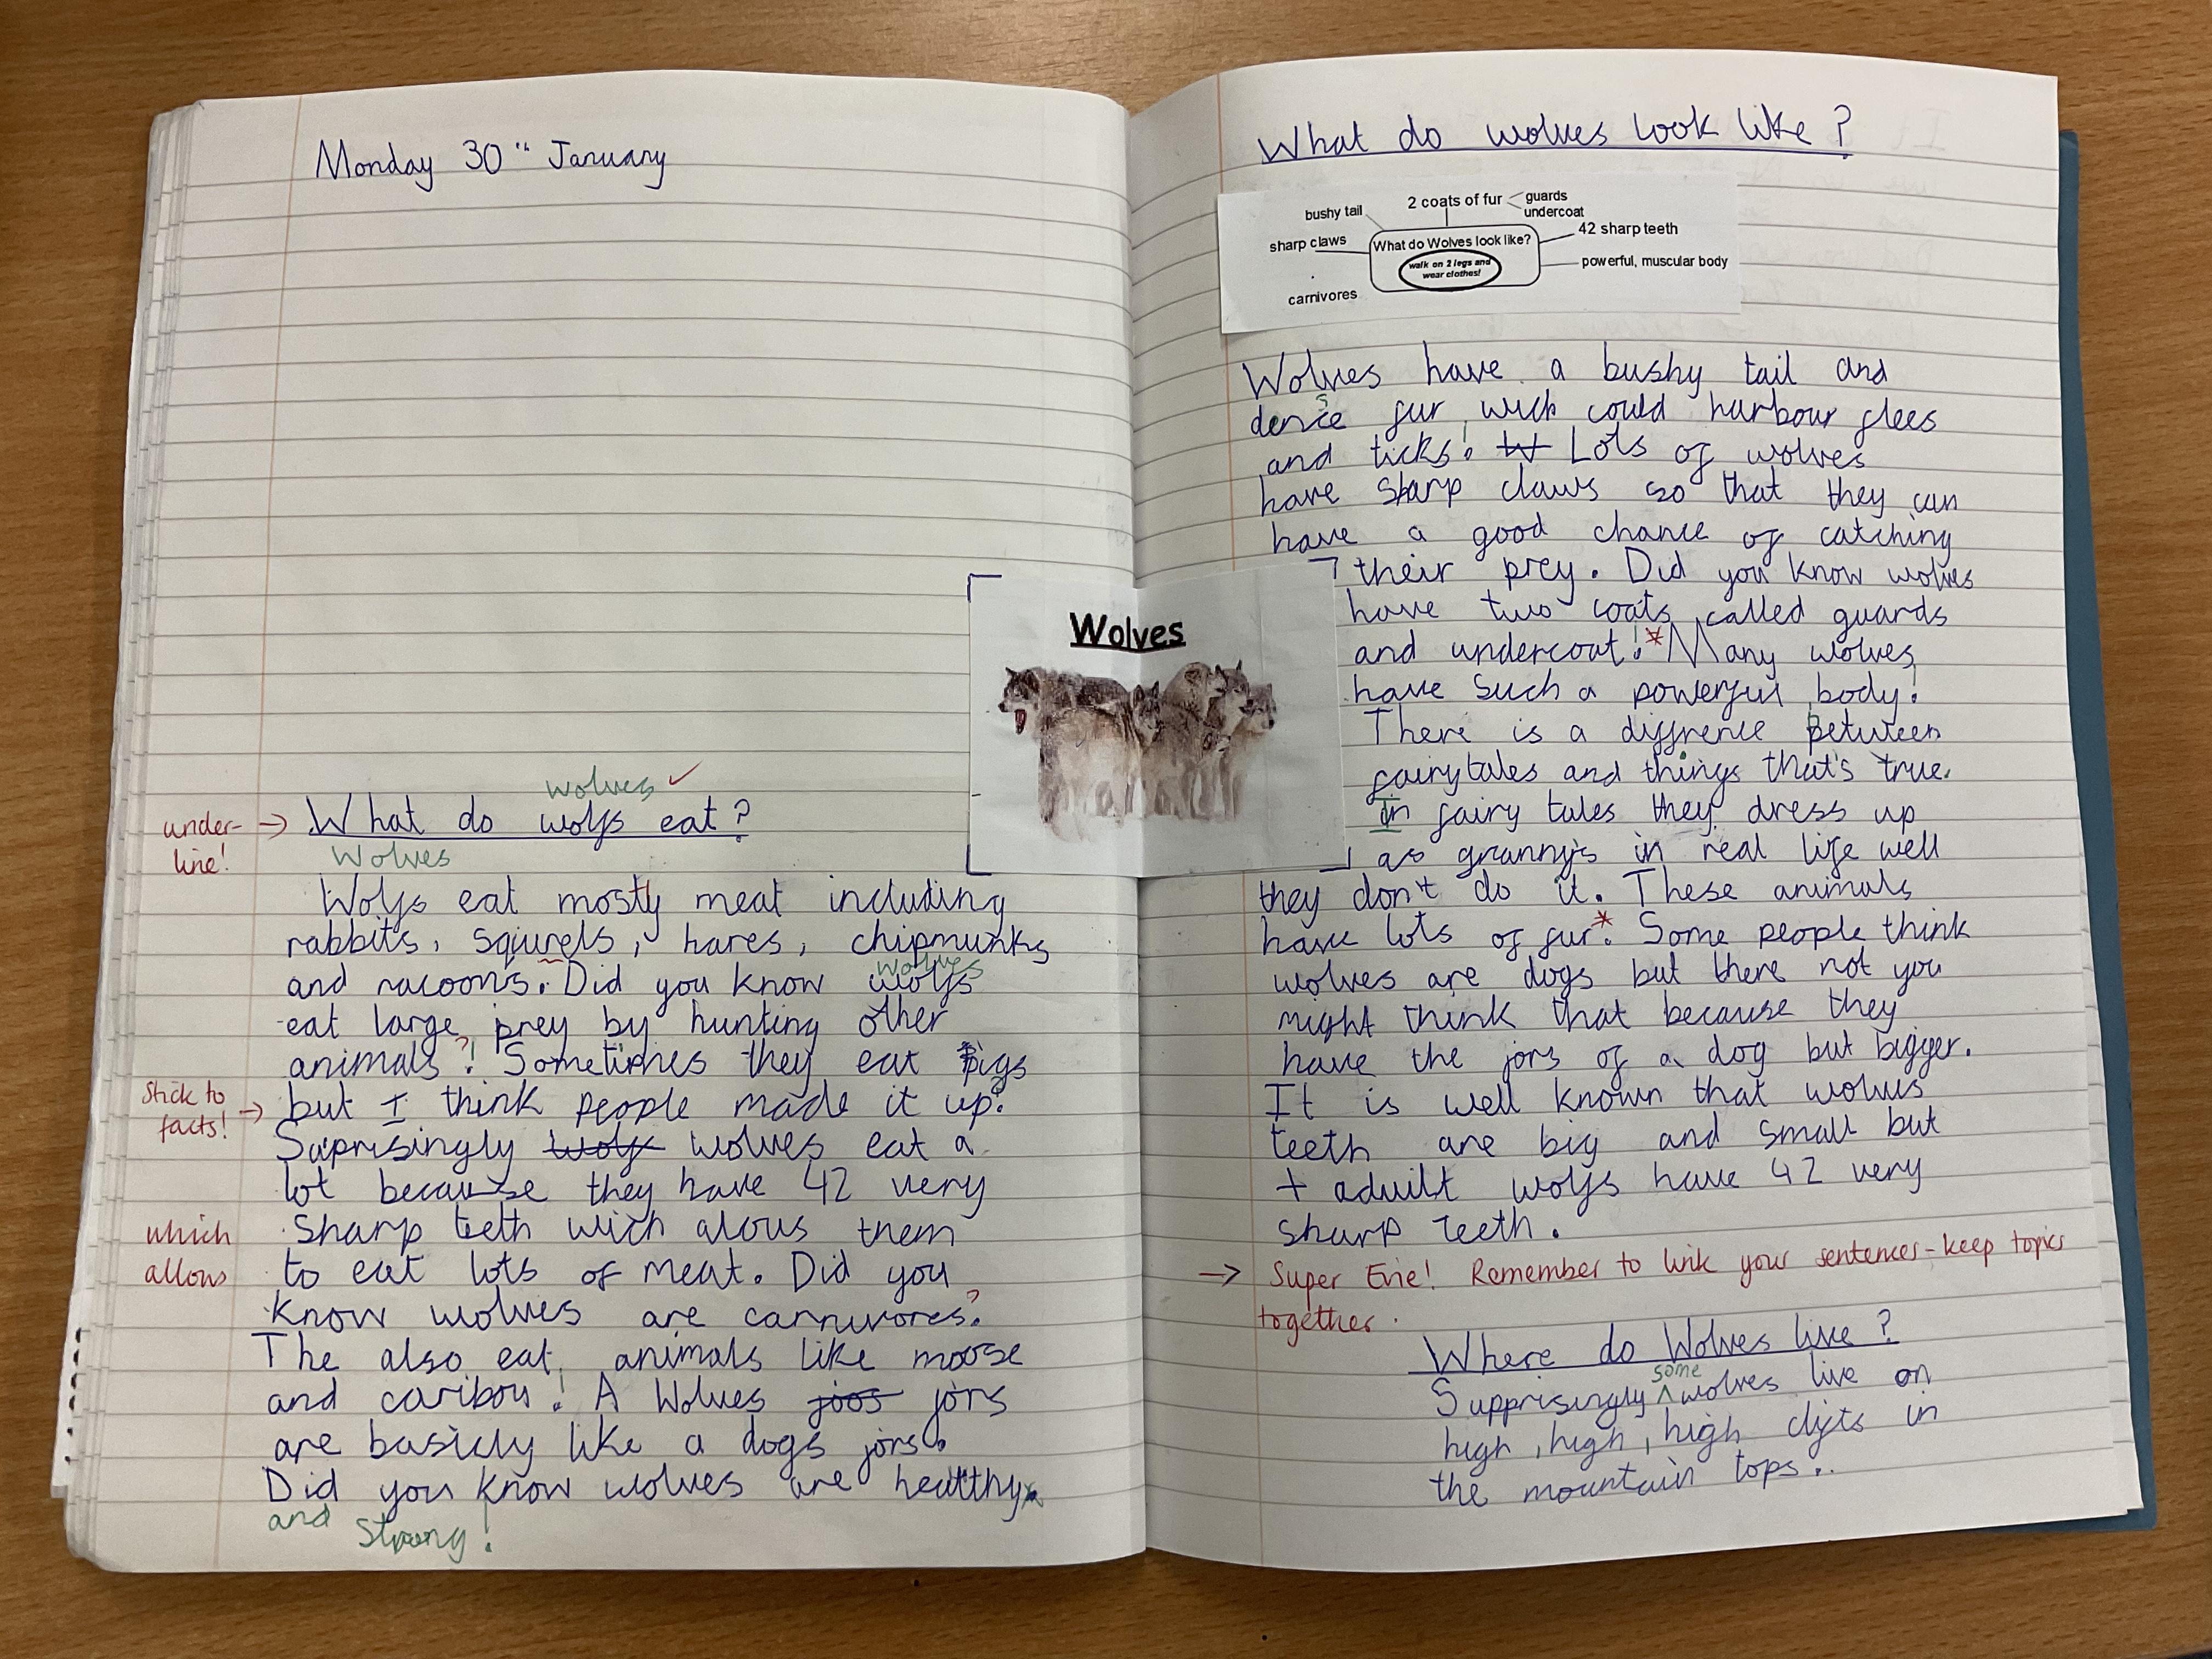 Monday 30th January
wolves ✓
under-
line!
→ What do wolfs eat?
Wolves
Wolfs eat mostly meat including
rabbits, squrels, hares, chipmunks
wolves
and racoons. Did you know wolfs
eat large prey by hunting other
animals?! Sometimes they eat Pigs
Stick to
facts! → but I think people made it up.
Suprisingly wolf wolves eat a
lot because they have 42 very
which
sharp teeth wich alous them
allows
to eat lots of meat. Did you
know wolves are carnivores?
The also eat animals like moose
and caribou! A Wolves joos jors
are basicly like a dogs jors.
Did you know wolves are healthy
and strong!
Wolves
What do wolves look like?
2 coats of fur
guards
undercoat
bushy tail
sharp claws
What do Wolves look like?
walk on 2 legs and
wear clothes!
42 sharp teeth
powerful, muscular body
carnivores
Wolves have a bushy tail and
s
dence fur wich could harbour flees
and ticks! W Lots of wolves
have sharp claws so that they can
have a good chance of catching
their prey. Did you know wolves
have two coats called guards
and undercoat!* Many wolves
have such a powerful body!
There is a diffrence between
fairytales and things that's true.
In fairy tales they dress up
as granny's in real life well
they don't do it. These animals
have lots of fur.* Some people think
wolves are dogs but there not you
might think that because they
have the jors of a dog but bigger.
It is well known that wolves
teeth are big and small but
+ aduilt wolfs have 42 very
sharp teeth.
→ Super Evie! Remember to link your sentences - keep topics
together.
Where do Wolves live?
some
Supprisingly ^ wolves live on
high, high, high clifts in
the mountain tops..